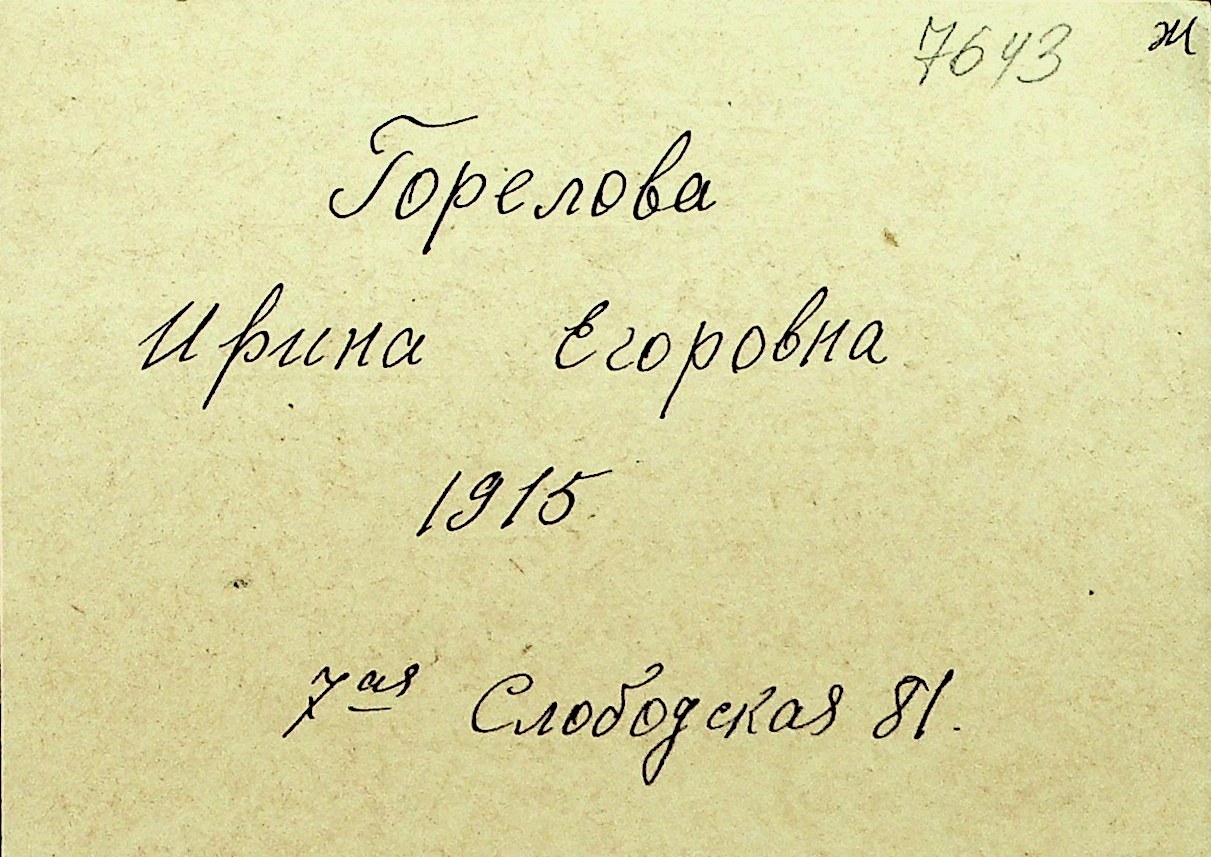 7643 ж
Горелова
Ирина Егоровна
1915
7ая Слободская 81.